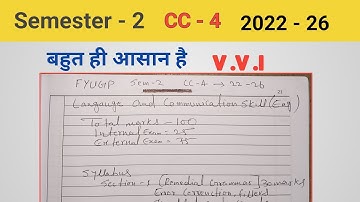 Semester - 2 CC - 4 2022 - 26
बहुत ही आसान है V.V.I
FYUGP Sem-2 CC-4 → 22-26
Langauge And Communication Skill (Eng)
Total marks - 100
Internal Exam = 25
External Exam = 75
Syllabus
Section-1 (Remedial Grammar) 30 marks
Error Correction, fillers